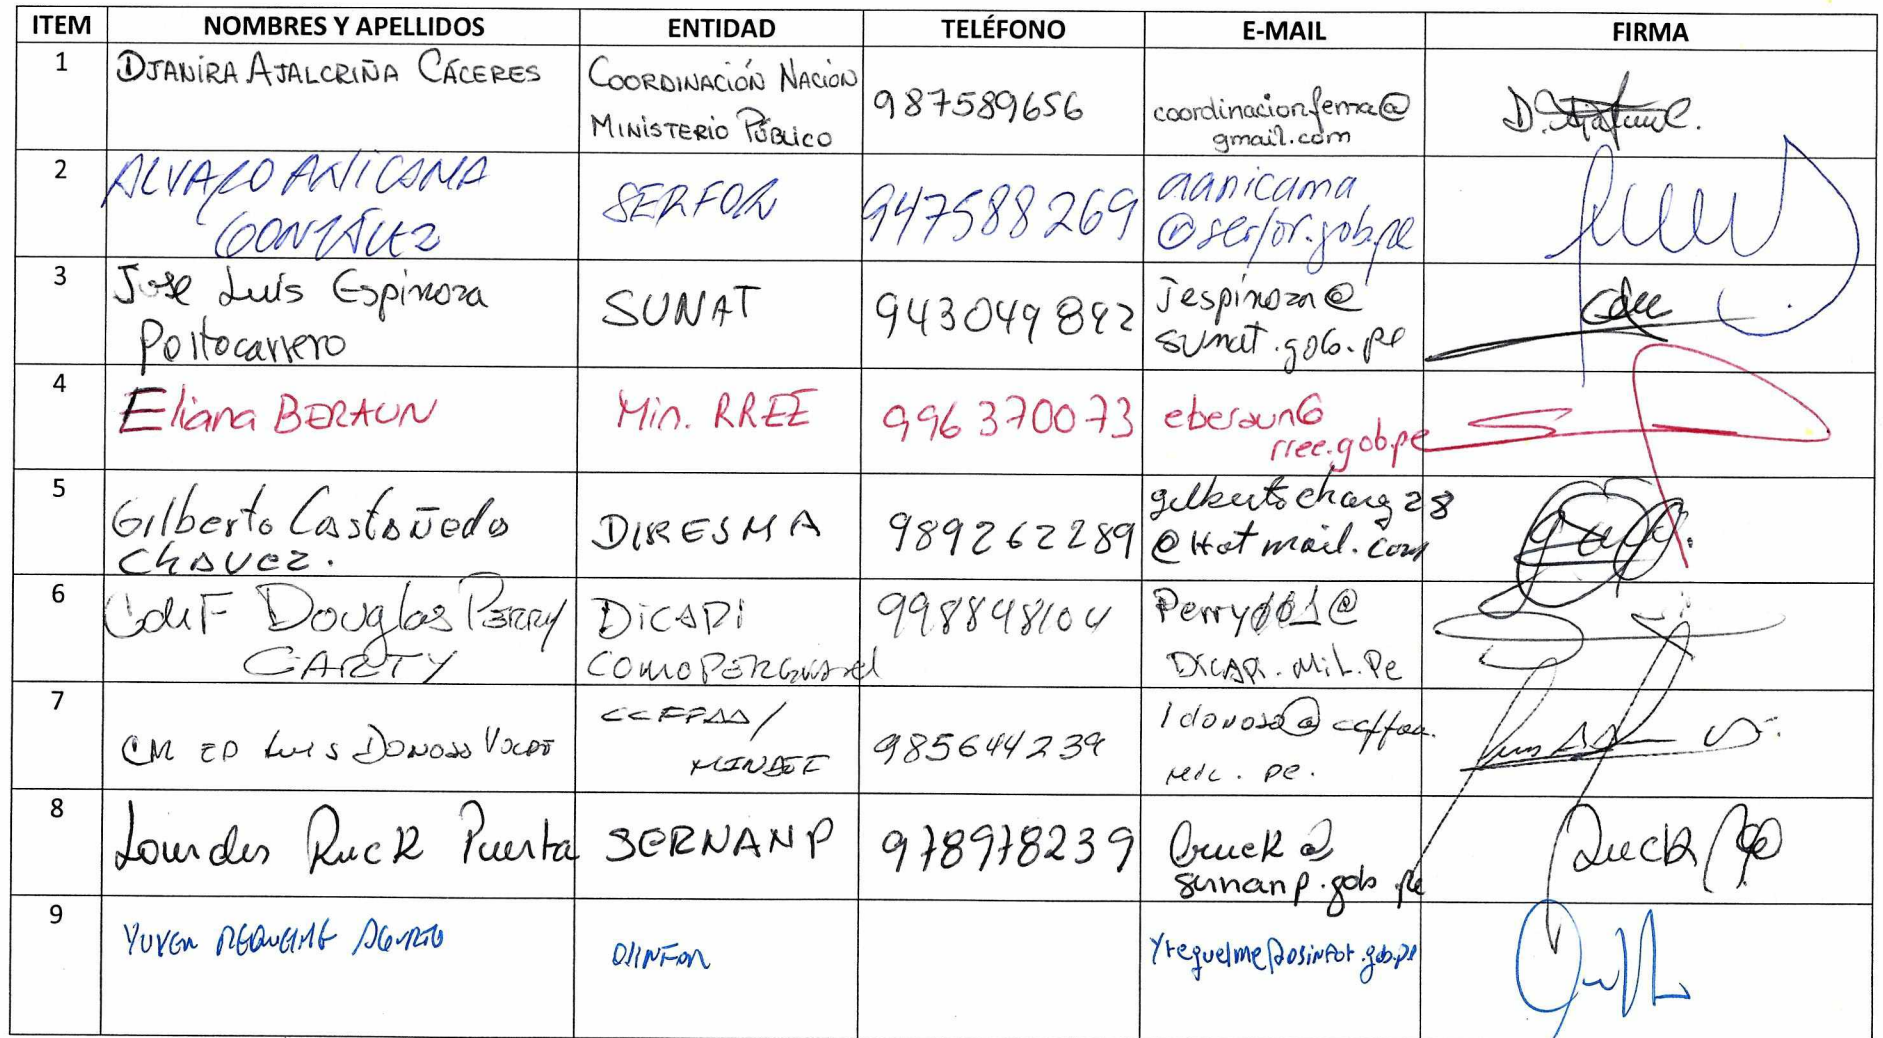 ITEM NOMBRES Y APELLIDOS ENTIDAD TELÉFONO E-MAIL FIRMA
1 DJANIRA AJALCRIÑA CÁCERES COORDINACIÓN NACION
MINISTERIO PÚBLICO 987589656 coordinacionfema@
gmail.com
2 ALVARO ANICAMA
GONZÁLEZ SERFOR 947588269 aanicama
@serfor.gob.pe
3 Jose Luis Espinoza
Portocarrero SUNAT 943049892 Jespinoza@
sunat.gob.pe
4 Eliana BERAUN Min. RREE 996370073 eberaun@
rree.gob.pe
5 Gilberto Castañeda
CHAVEZ. DIRESMA 989262289 gilbertochang28
@Hotmail.com
6 Douglas PERRY
GARTY DICAPI
998848104 Perry
DICAPI.MIL.Pe
7 CM EP Luis DONOSO CCFFAA/
MINDEF 985644239 ldonoso@ccffaa.
MIL.PE.
8 Lourdes Ruck Puerta SERNANP 978978239 lruck@
sernanp.gob.pe
9 YURGEN REQUELME OSINFOR yrequelme@osinfor.gob.pe